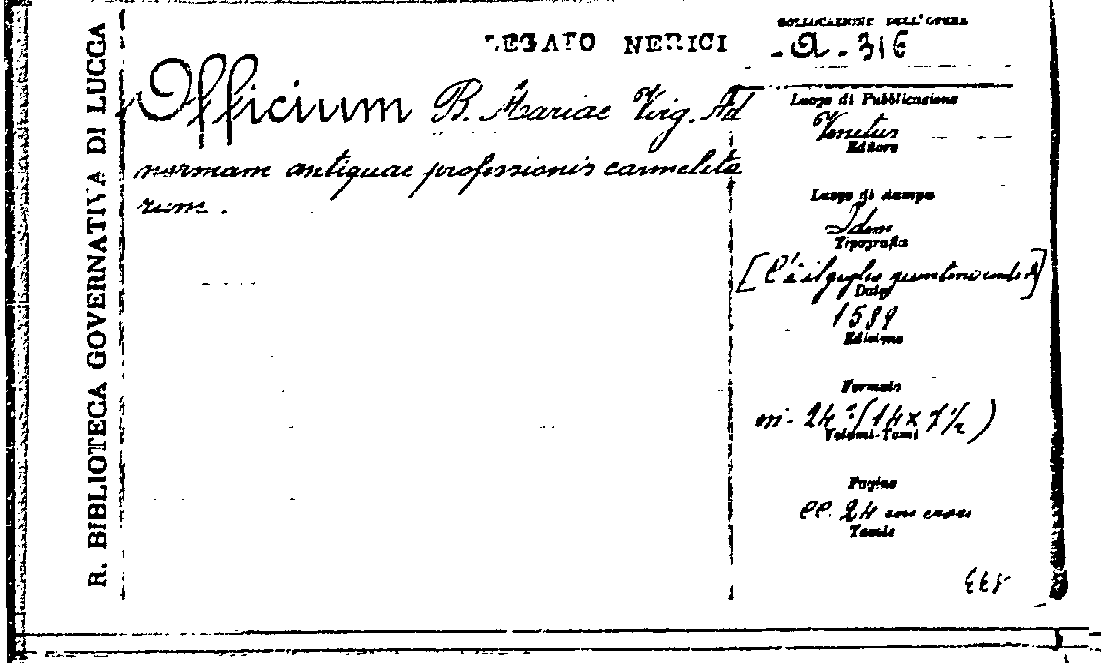 R. BIBLIOTECA GOVERNATIVA DI LUCCA
LEGATO NERICI
COLLOCAZIONE DELL'OPERA
- A - 316
Officium B. Mariae Virg. Ad
normam antiquae professionis carmelita
rum.
Luogo di Pubblicazione
Venetus
Editore
Luogo di stampa
Idem
Tipografia
[C'è il giglio
Data
1589
Edizione
Formato
in- 24° (14 x 7½)
Volumi-Tomi
Pagine
cc. 24
Tavole